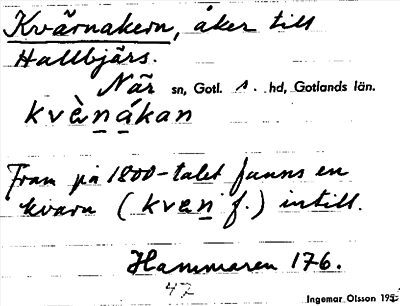 Kvärnakern, åker till
Hallbjärs.
När sn, Gotl. s. hd, Gotlands län.
kvènákan
Fram på 1800-talet fanns en
kvarn (kvεn f.) intill.
Hammaren 176.
47
Ingemar Olsson 195